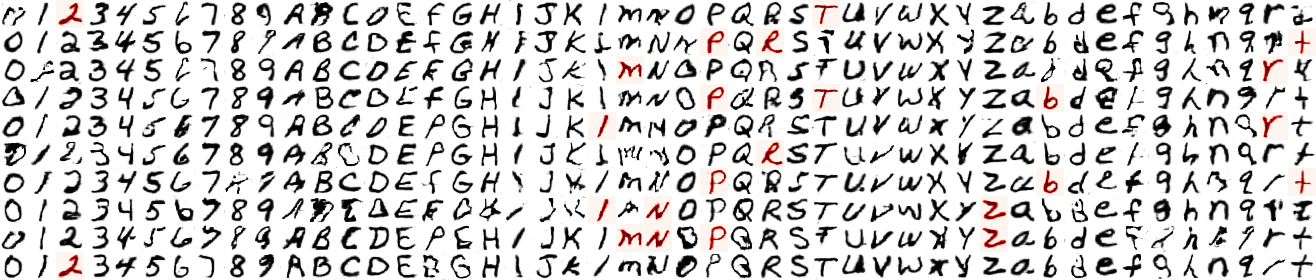 0 1 2 3 4 5 6 7 8 9 A B C D E F G H I J K l m N O P Q R S T U V W X Y Z a b d e f g h n q r
0 1 2 3 4 5 6 7 8 9 A B C D E f G H I J K l m N P Q R S T U V W X Y Z a b d e f g h n q t
0 2 3 4 5 6 7 8 9 A B C D E F G H I J K l m N O P Q R S T U V W X Y Z a d e f g h n q r
0 1 2 3 4 5 6 7 8 9 A B C D E F G H I J K l m N O P Q R S T U V W X Y Z a b d e g h n g r t
0 1 2 3 4 5 6 7 8 9 A B C D E P G H I J K l m N O P Q R S T U V W X Y Z a b d e f g h n q r t
0 1 2 3 4 5 6 7 8 9 A B D E P G H I J K l O P Q R S T U V W X Y Z a b d e g h n q r t
0 1 2 3 4 5 6 7 A B C D E f G H I J l m N O P Q R S T U V W X Y Z a b d e f g h q r t
0 1 2 3 4 5 6 7 8 9 D E F G J K l N O P Q R S T U V W X Y Z a b e f g h n q
0 1 2 3 4 5 6 7 8 9 A B C D E F E H I J K l m N P Q R S T U V W X Y Z a b d e h q r t
0 1 2 3 4 5 6 7 8 9 A B C D E G H I J K l m N O P Q R S T U V W X Y Z a b d e f g h n q r t